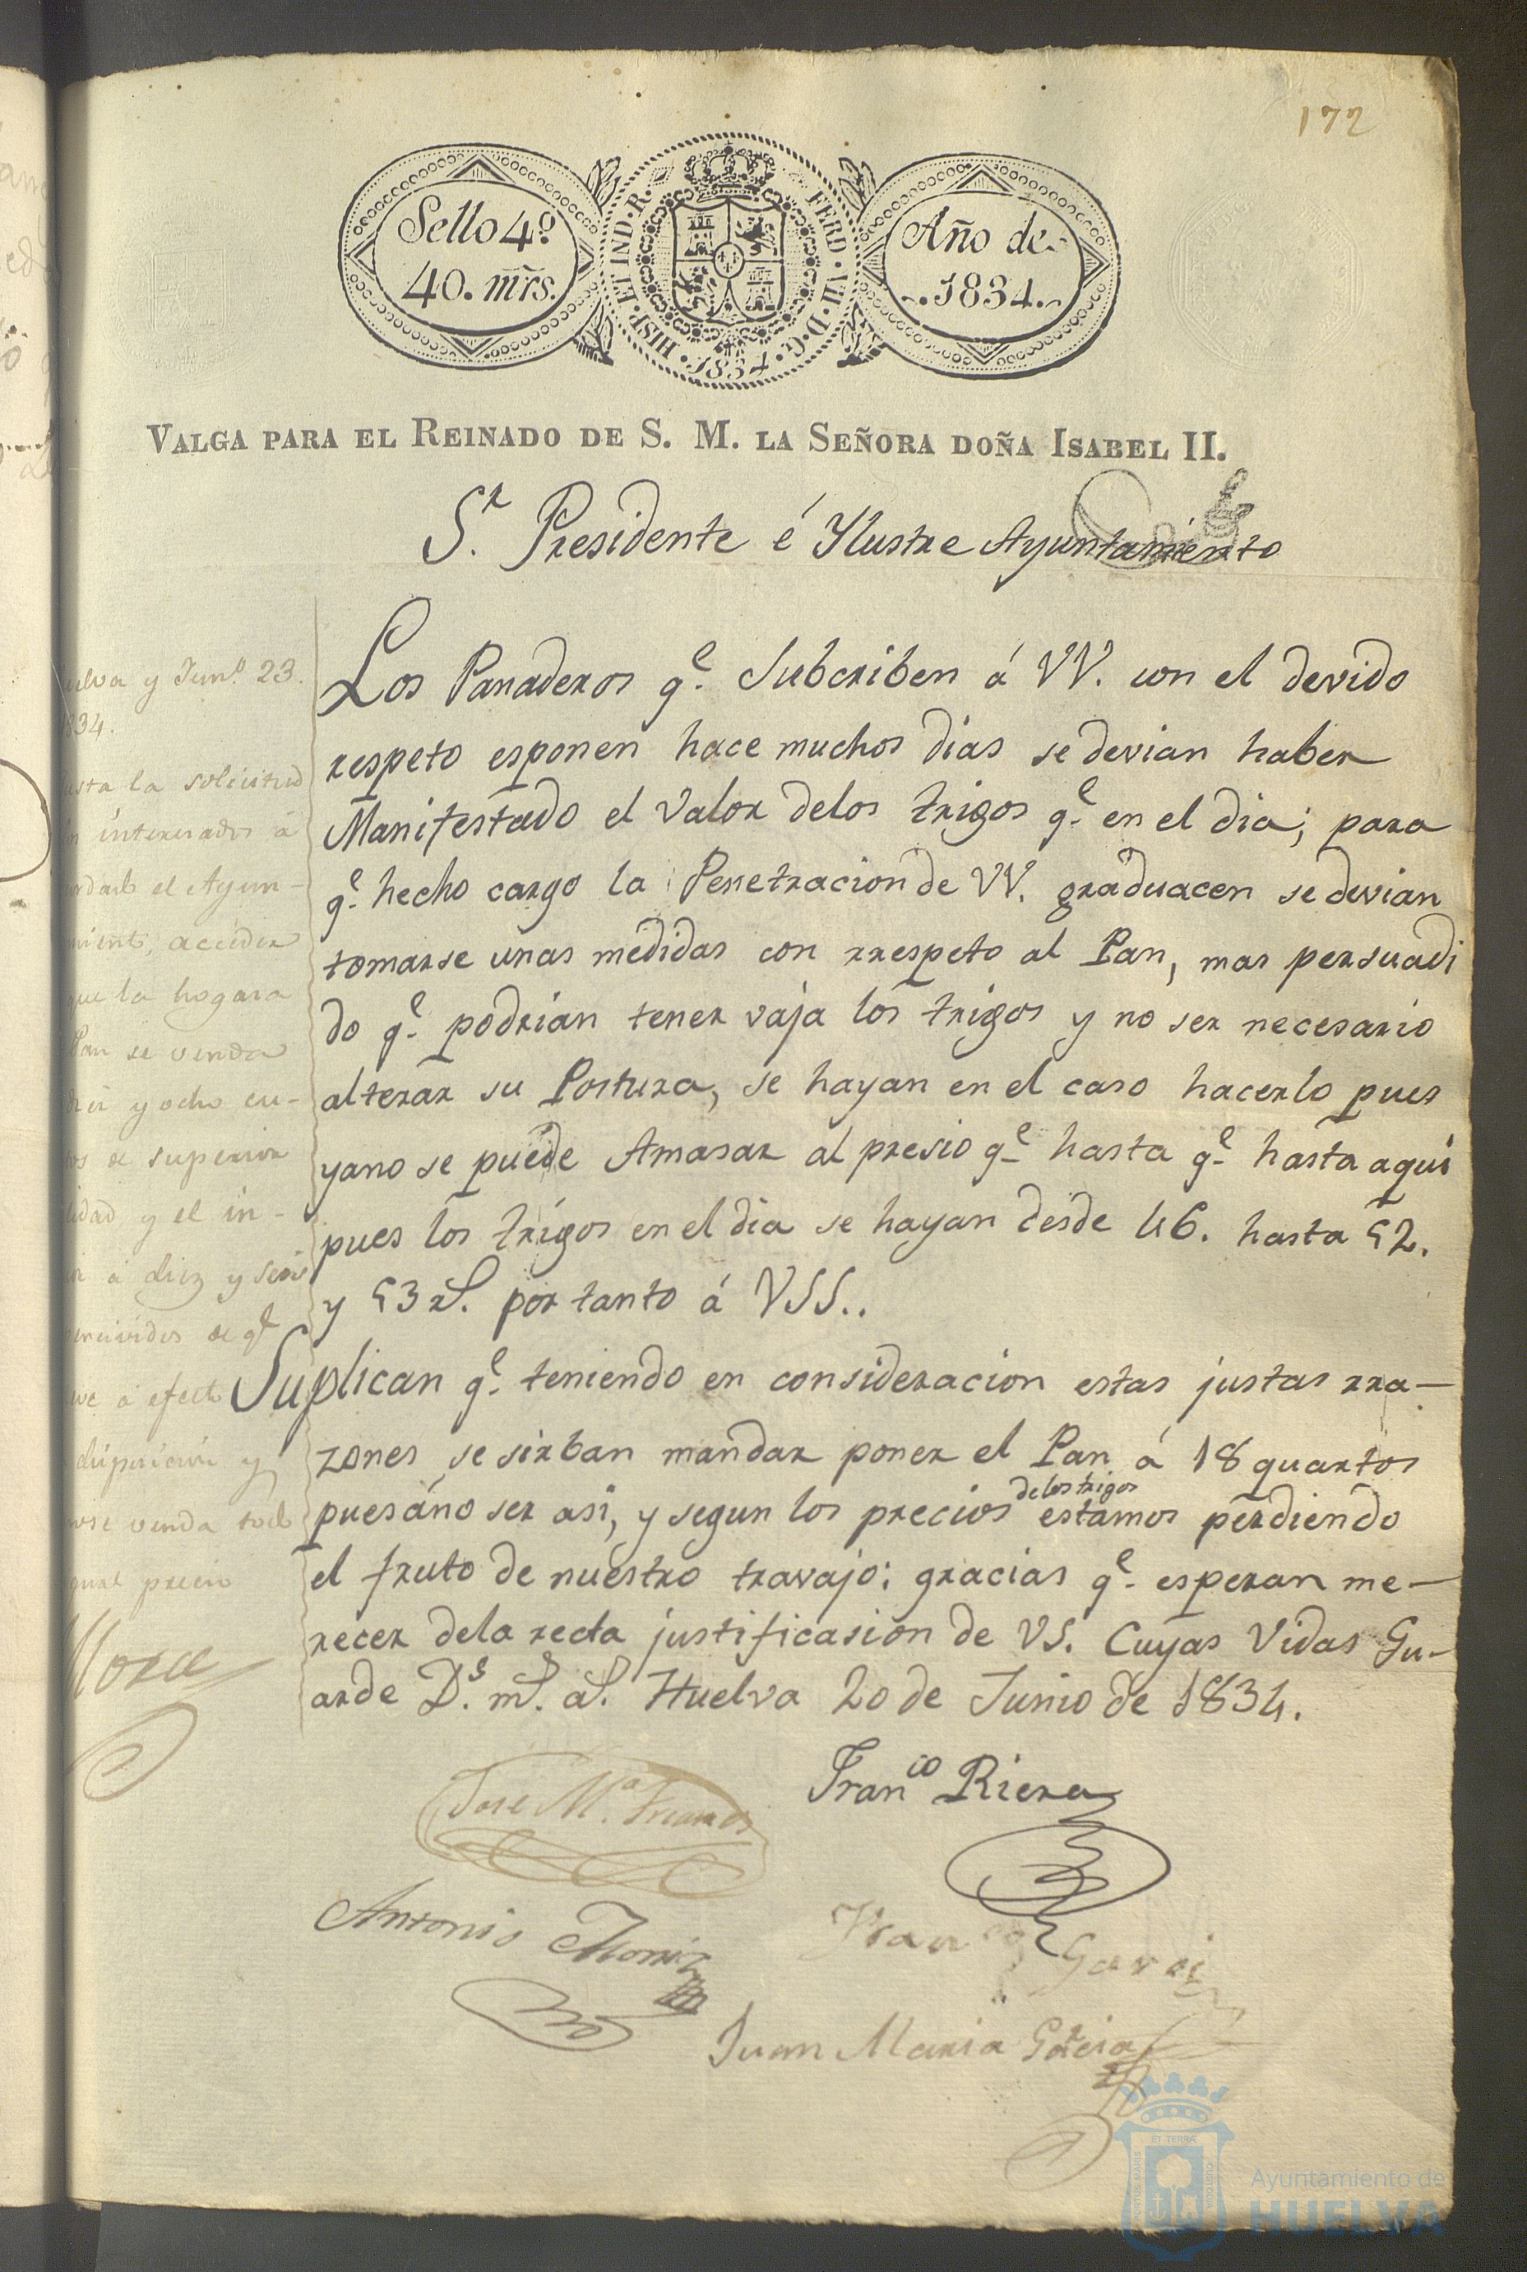 172
Sello 4º
40. mrs.
HISP. ET IND. R. FERD. VII. D. G. 1834.
Año de
1834.
VALGA PARA EL REINADO DE S. M. LA SEÑORA DOÑA ISABEL II.
S.r Presidente é Ylustre Ayuntamiento
Los Panaderos q.e Subcriben á VV. con el devido
respeto esponen hace muchos dias se devian haber
Manifestado el valor delos trigos q.e en el dia; para
q.e hecho cargo la Penetracion de VV. graduacen se devian
tomarse unas medidas con rrespeto al Pan, mas persuadi
do q.e podrian tener vaja los trigos y no ser necesario
alterar su Postura, se hayan en el caso hacerlo pues
yano se puede Amasar al presio q.e hasta q.e hasta aqui
pues los trigos en el dia se hayan desde 46. hasta 52.
y 53 rs. por tanto á VSS..
Suplican q.e teniendo en consideracion estas justas rra-
zones se sirban mandar poner el Pan á 18 quartos
puesáno ser asi, y segun los precios delos trigos estamos perdiendo
el fruto de nuestro travajo: gracias q.e esperan me-
recer dela recta justificasion de VS. Cuyas Vidas Gu-
arde D.s m.s a.s Huelva 20 de Junio de 1834.
Fran.co Riera
Jose M.a
Antonio
Fran.co Garci
Juan Maria Garcia
elva y Jun.o 23.
834.
ista la solicitud
interesados á
el Ayun-
mient, acceder
que la hogasa
Pan se venda
diez y ocho cu-
tos de superior
lidad y el in-
á diez y seis
de q.e
á efecto
y
venda todo
gual precio
Mora
ET TERRÆ
PORTUS MARIS
CUSTODIA
Ayuntamiento de
HUELVA